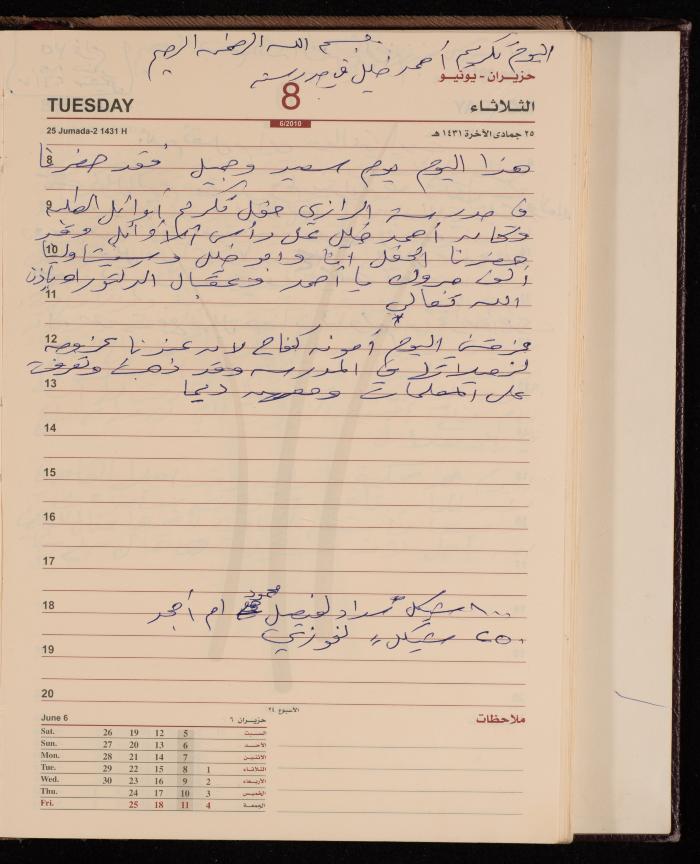 بسم الله الرحمن الرحيم
اليوم تكريم أحمد خليل في مدرسته
حزيران - يونيو
TUESDAY 8 الثلاثاء
6/2010
25 Jumada-2 1431 H ٢٥ جمادى الآخرة ١٤٣١ هـ
8 هذا اليوم يوم سعيد وجميل فقد حضرنا
9 في مدرسة الرازي حفل تكريم أوائل الطلبة
وكان أحمد خليل على رأس الأوائل وقد
10 حضرنا الحفل أنا وام خليل
ألف مبروك يا أحمد وعقبال الدكتوراه بإذن
11 الله تعالى
12 اليوم كفاح لانه عندنا
في المدرسة وقد ذهبت وتعرفت
13 على المعلمات ديما
14
15
16
17
18 ٨٠٠ شيكل سداد لفيصل محمود ام أمجد
٢٥٠ شيكل لفوزي
19
20
الأسبوع ٢٤
June 6 حزيران ٦
ملاحظات
Sat. 26 19 12 5 السبت
Sun. 27 20 13 6 الأحد
Mon. 28 21 14 7 الاثنين
Tue. 29 22 15 8 1 الثلاثاء
Wed. 30 23 16 9 2 الأربعاء
Thu. 24 17 10 3 الخميس
Fri. 25 18 11 4 الجمعة